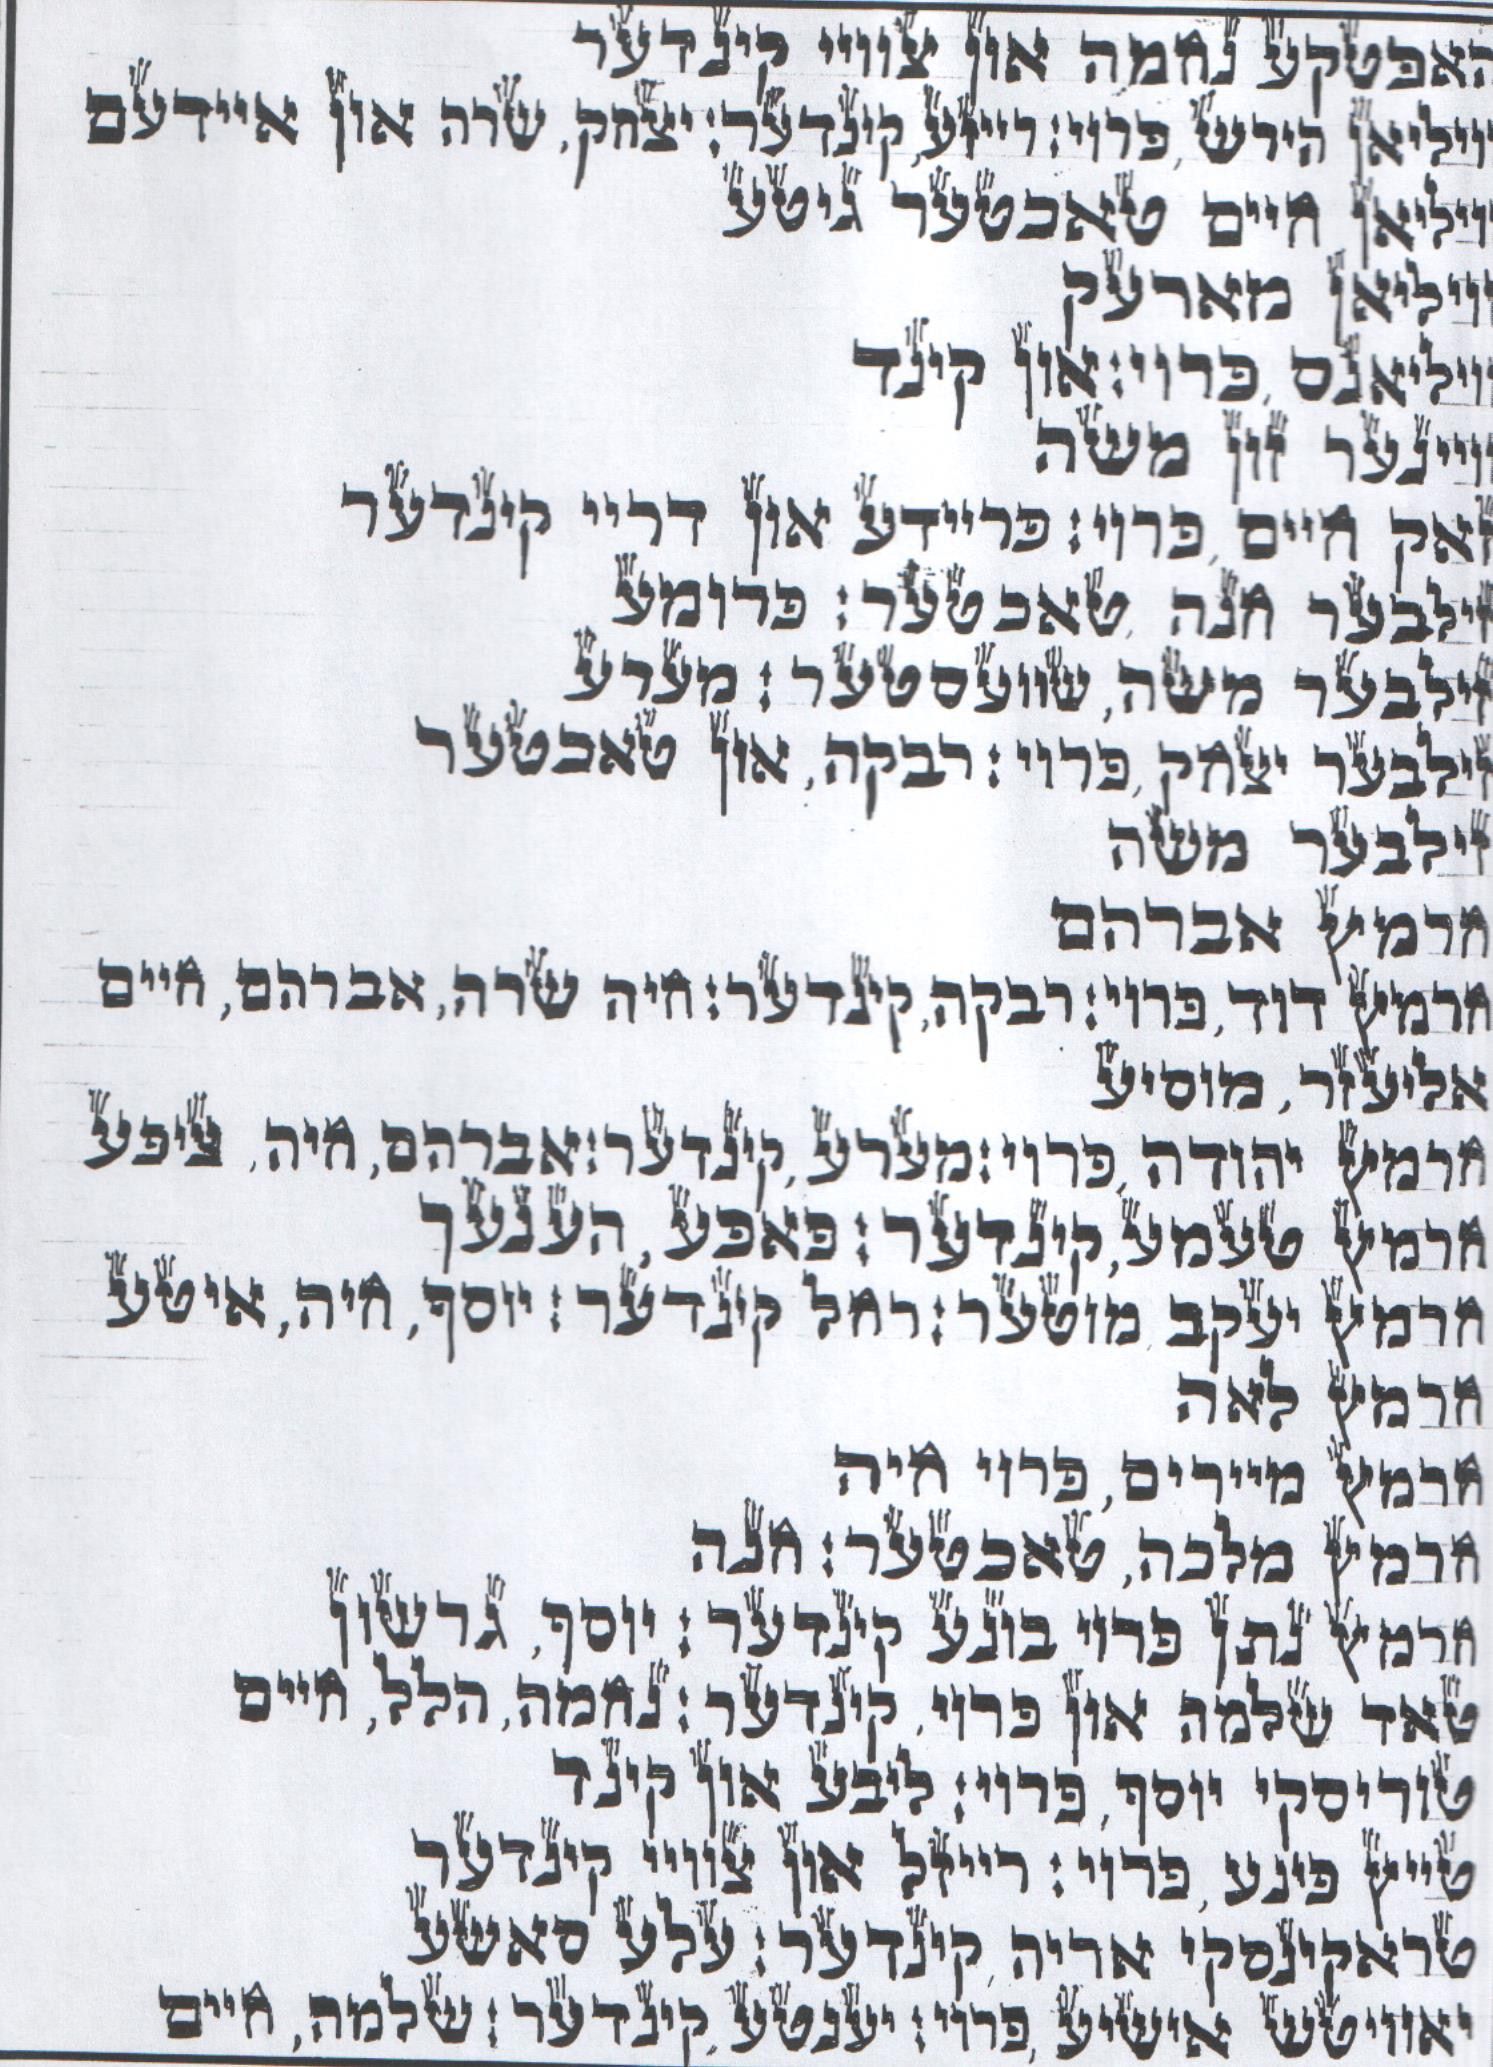 האפטקע נחמה און צווײ קינדער
וויליאן הירש, פרוי: רייזע, קינדער: יצחק, שרה און איידעם
וויליאן חיים טאכטער גיטע
וויליאן מארעק
וויליאנס, פרוי: און קינד
ווײנער זון משה
זאק חיים, פרוי: פריידע און דריי קינדער
זילבער חנה, טאכטער: פרומע
זילבער משה, שוועסטער: מערע
זילבער יצחק, פרוי: רבקה, און טאכטער
זילבער משה
חרמץ אברהם
חרמץ דוד, פרוי: רבקה, קינדער: חיה שרה, אברהם, חיים
אליעזר, מוסיע
חרמץ יהודה, פרוי: מערע, קינדער: אברהם, חיה, ציפע
חרמץ טעמע, קינדער: פאפע, הענעך
חרמץ יעקב מוטער: רחל קינדער: יוסף, חיה, איטע
חרמץ לאה
חרמץ מיירים, פרוי חיה
חרמץ מלכה, טאכטער: חנה
חרמץ נתן פרוי בונע קינדער: יוסף, גרשון
טאד שלמה און פרוי, קינדער: נחמה, הלל, חיים
טוריסקי יוסף, פרוי: ליבע און קינד
טייץ פינע, פרוי: רייזל און צווײ קינדער
טראקינסקי אריה, קינדער: עלע סאשע
יאוויטש אישיע, פרוי: יענטע, קינדער: שלמה, חיים